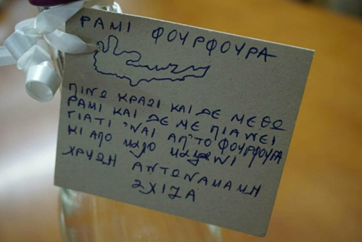 ΡΑΜΙ ΦΟΥΡΦΟΥΡΑ
ΠΙΝΩ ΚΡΑΣΙ ΚΑΙ ΔΕ ΜΕΘΩ
ΡΑΜΙ ΚΑΙ ΔΕ ΜΕ ΠΙΑΝΕΙ
ΓΙΑΤΙ 'ΝΑΙ ΑΠ' ΤΟ ΦΟΥΡΦΟΥΡΑ
ΚΙ ΑΠΟ ΚΑΛΟ ΚΑΖΑΝΙ
ΧΡΥΣΗ ΑΝΤΩΝΑΚΑΚΗ